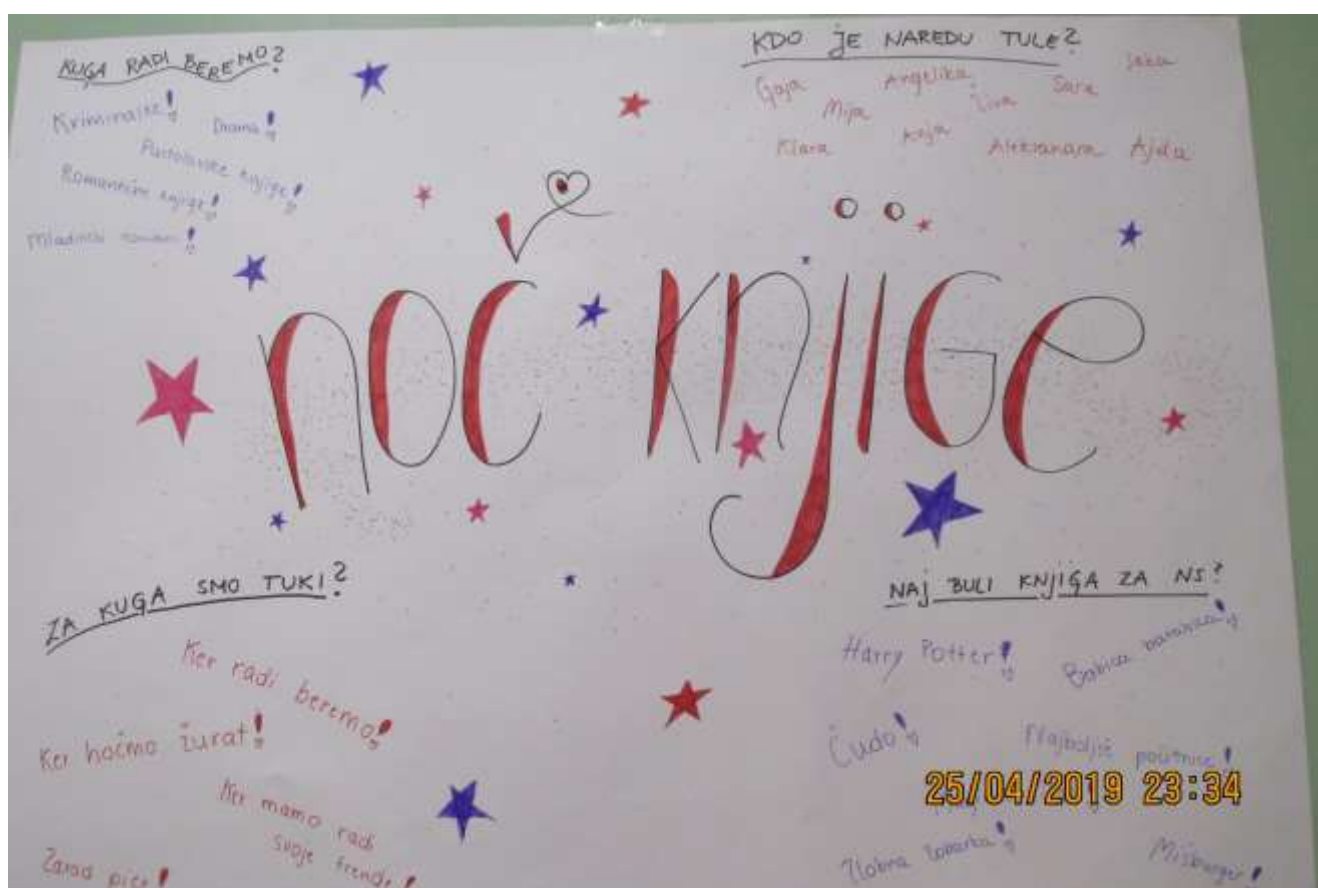 KUGA RADI BEREMO?
Kriminalke!
Drama!
Pustolovske knjige!
Romantične knjige!
Mladinski roman!
KDO JE NAREDU TULE?
Gaja
Angelika
Sara
Mija
Živa
Klara
Kaja
Aleksandra
Ajda
NOČ KNJIGE
ZA KUGA SMO TUKI?
Ker radi beremo!
Ker hočmo žurat!
Ker mamo radi
svoje frende!
Zarad pice!
NAJ BULI KNJIGA ZA NS?
Harry Potter!
Babica barabica!
Čudo!
Najboljše počitnice!
25/04/2019 23:34
Zlobna zobarka!
Mišburger!